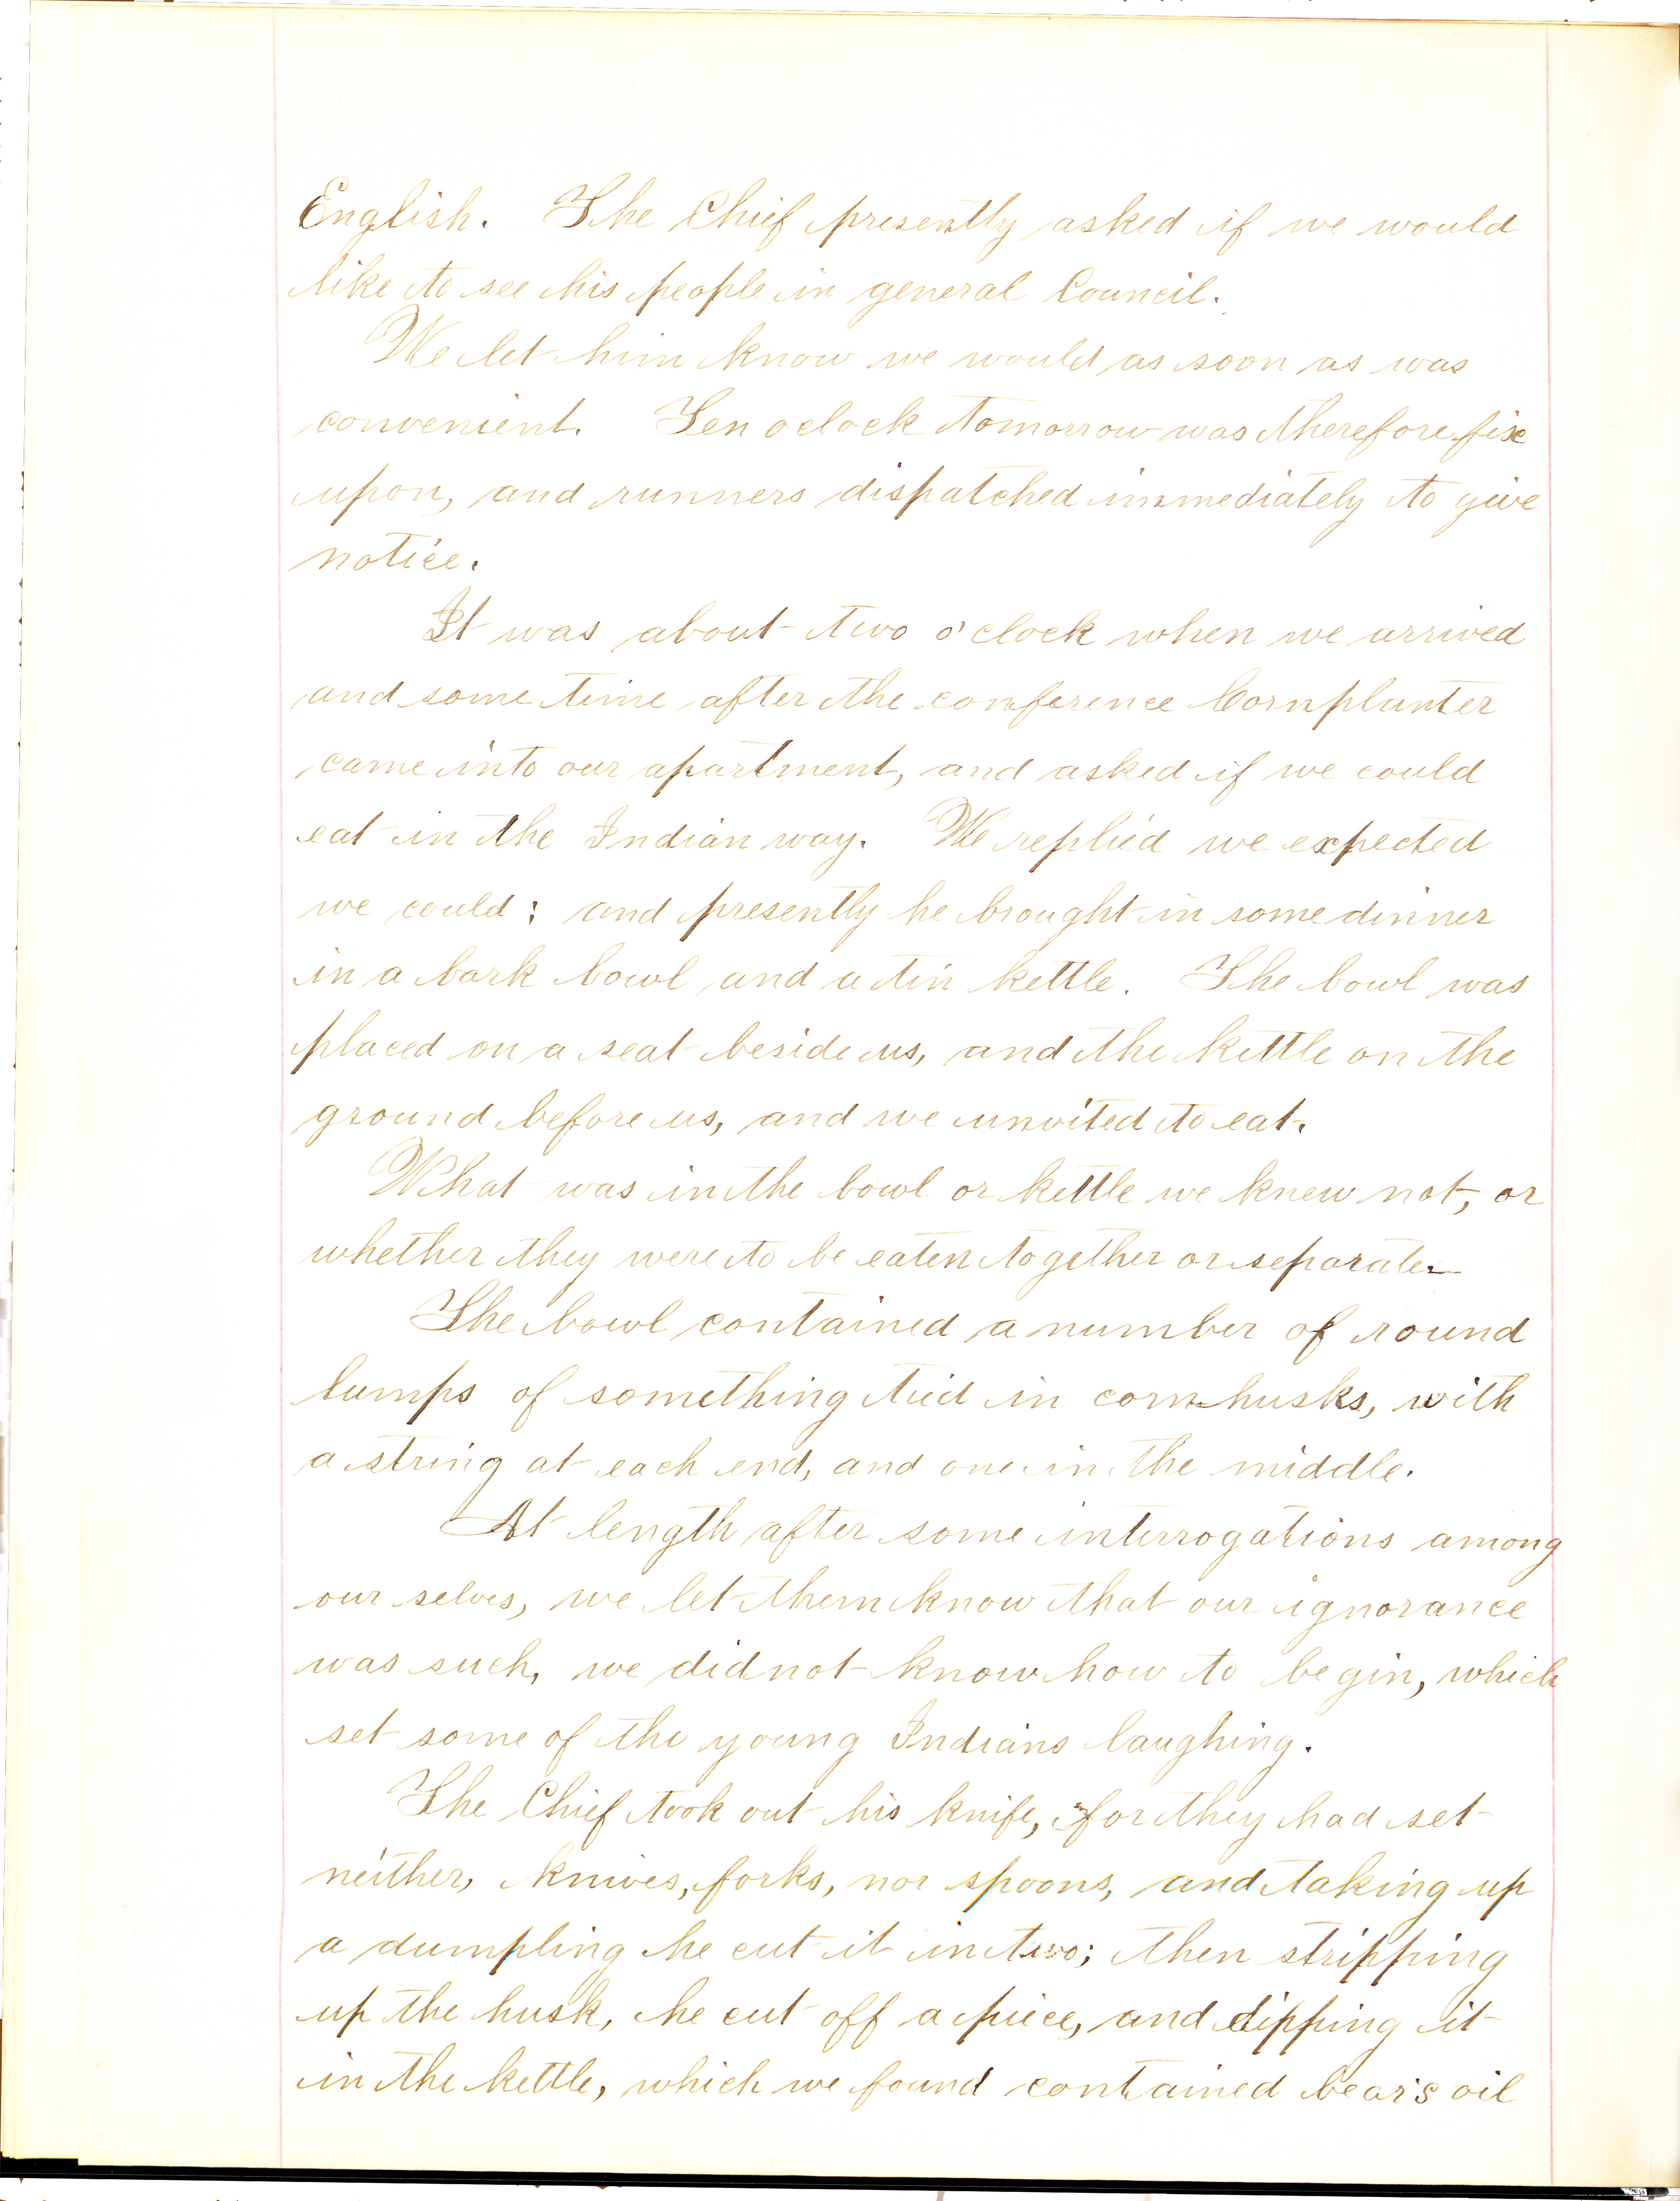 English. The Chief presently asked if we would
like to see his people in general Council.
We let him know we would as soon as was
convenient. Ten oclock tomorrow was therefore fixe
upon, and runners dispatched immediately to give
notice.
It was about two o'clock when we arrived
and some time after the conference Cornplanter
came into our apartment, and asked if we could
eat in the Indian way. We replied we expected
we could; and presently he brought in some dinner
in a bark bowl and a tin kettle. The bowl was
placed on a seat beside us, and the kettle on the
ground before us, and we unvited to eat.
What was in the bowl or kettle we knew not, or
whether they were to be eaten together or separate.
The bowl contained a number of round
lumps of something tied in corn-husks, with
a string at each end, and one in the middle.
At length after some interrogations among
our selves, we let them know that our ignorance
was such, we did not know how to begin, which
set some of the young Indians laughing.
The Chief took out his knife, for they had set
neither, knives, forks, nor spoons, and taking up
a dumpling he cut it in two; then stripping
up the husk, he cut off a piece, and dipping it
in the kettle, which we found contained bear's oil